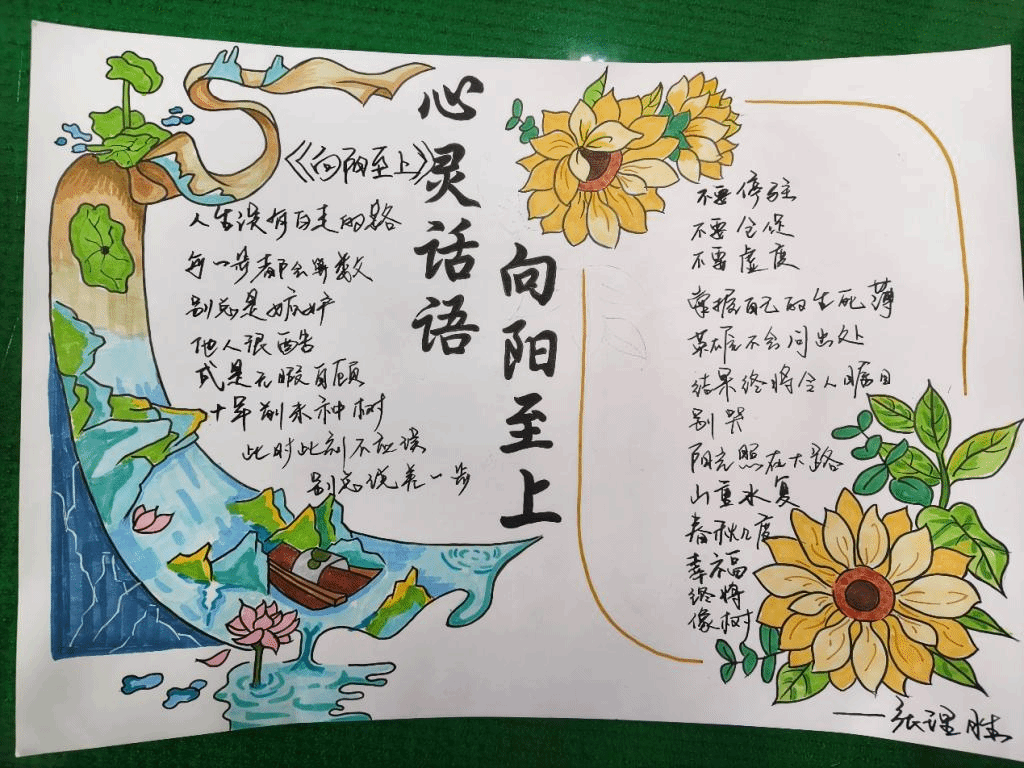 心灵话语
向阳至上
《向阳至上》
人生没有白走的路
每一步都会算数
别总是嫉妒
他人很酷
或是无暇自顾
十年前未种树
此时此刻不应误
别总说差一步
不要停驻
不要仓促
不要虚度
掌握自己的生死薄
英雄不会问出处
结果终将令人瞩目
别哭
阳光照在大路
山重水复
春秋几度
幸福
终将
像树
——张理胜